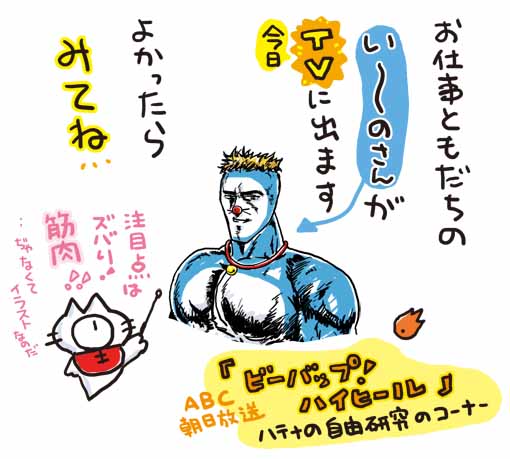 お仕事ともだちの
い〜のさんが
今日
TVに出ます
よかったら
みてね…
注目点は
ズバリ!
筋肉!!
…ぢゃなくて
イラストなのだ
『ビーバップ!
ハイヒール』
ABC
朝日放送
ハテナの自由研究のコーナー